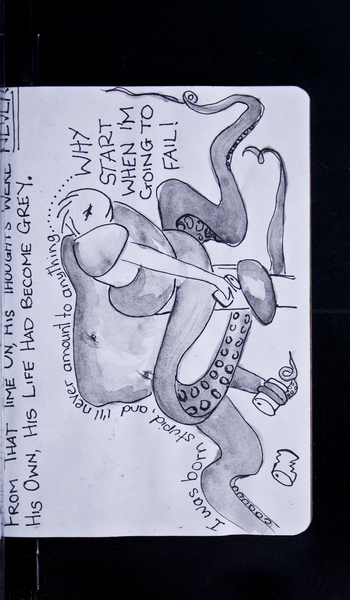 FROM THAT TIME ON, HIS THOUGHTS WERE NEVER
HIS OWN, HIS LIFE HAD BECOME GREY.
I was born stupid, and i'll never amount to anything..........
WHY
START
WHEN I'M
GOING TO
FAIL!